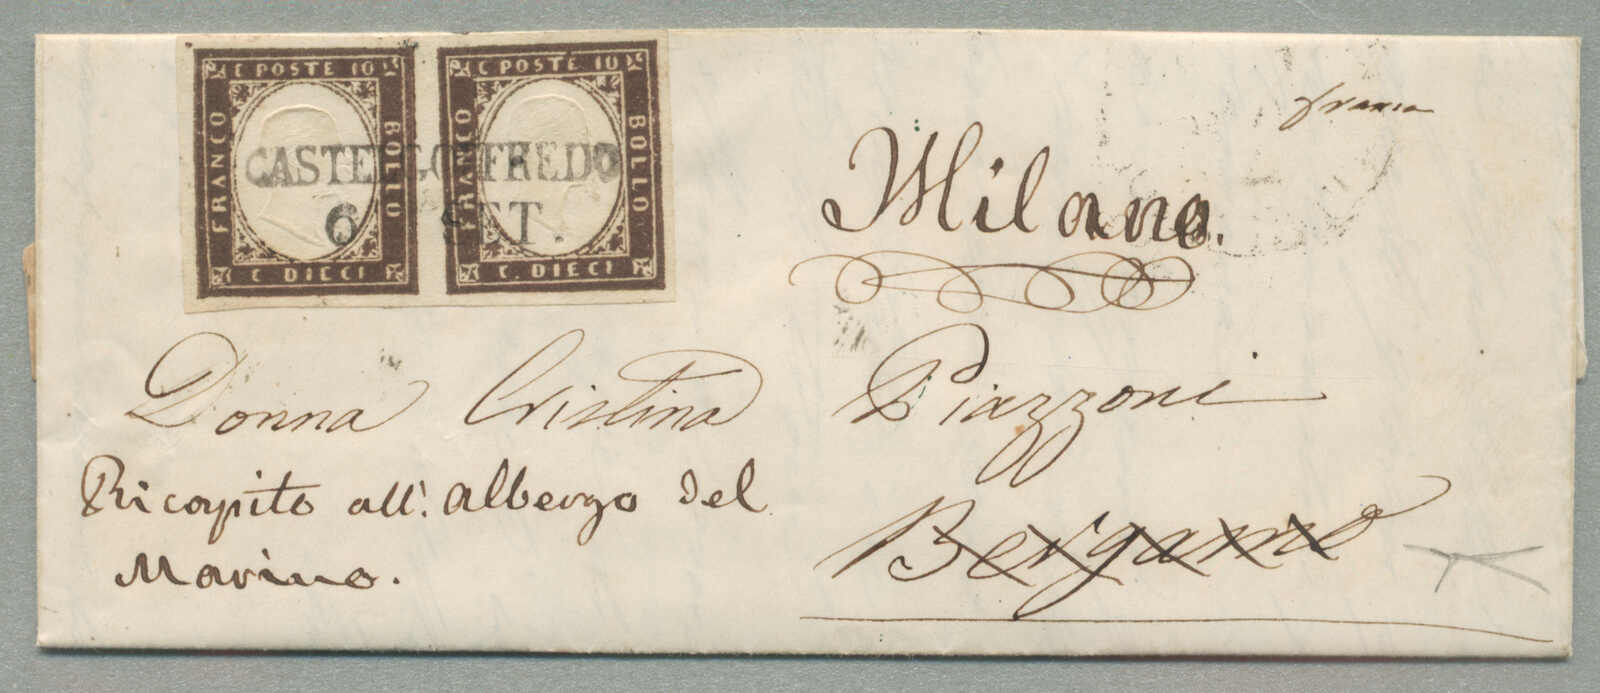 C POSTE 10
FRANCO
BOLLO
C. DIECI
C POSTE 10
FRANCO
BOLLO
C. DIECI
CASTEL GOFFREDO
6 SET.
franca
Milano.
Donna Cristina Piazzoni
Ricapito all'albergo del
Marino.
Bergamo